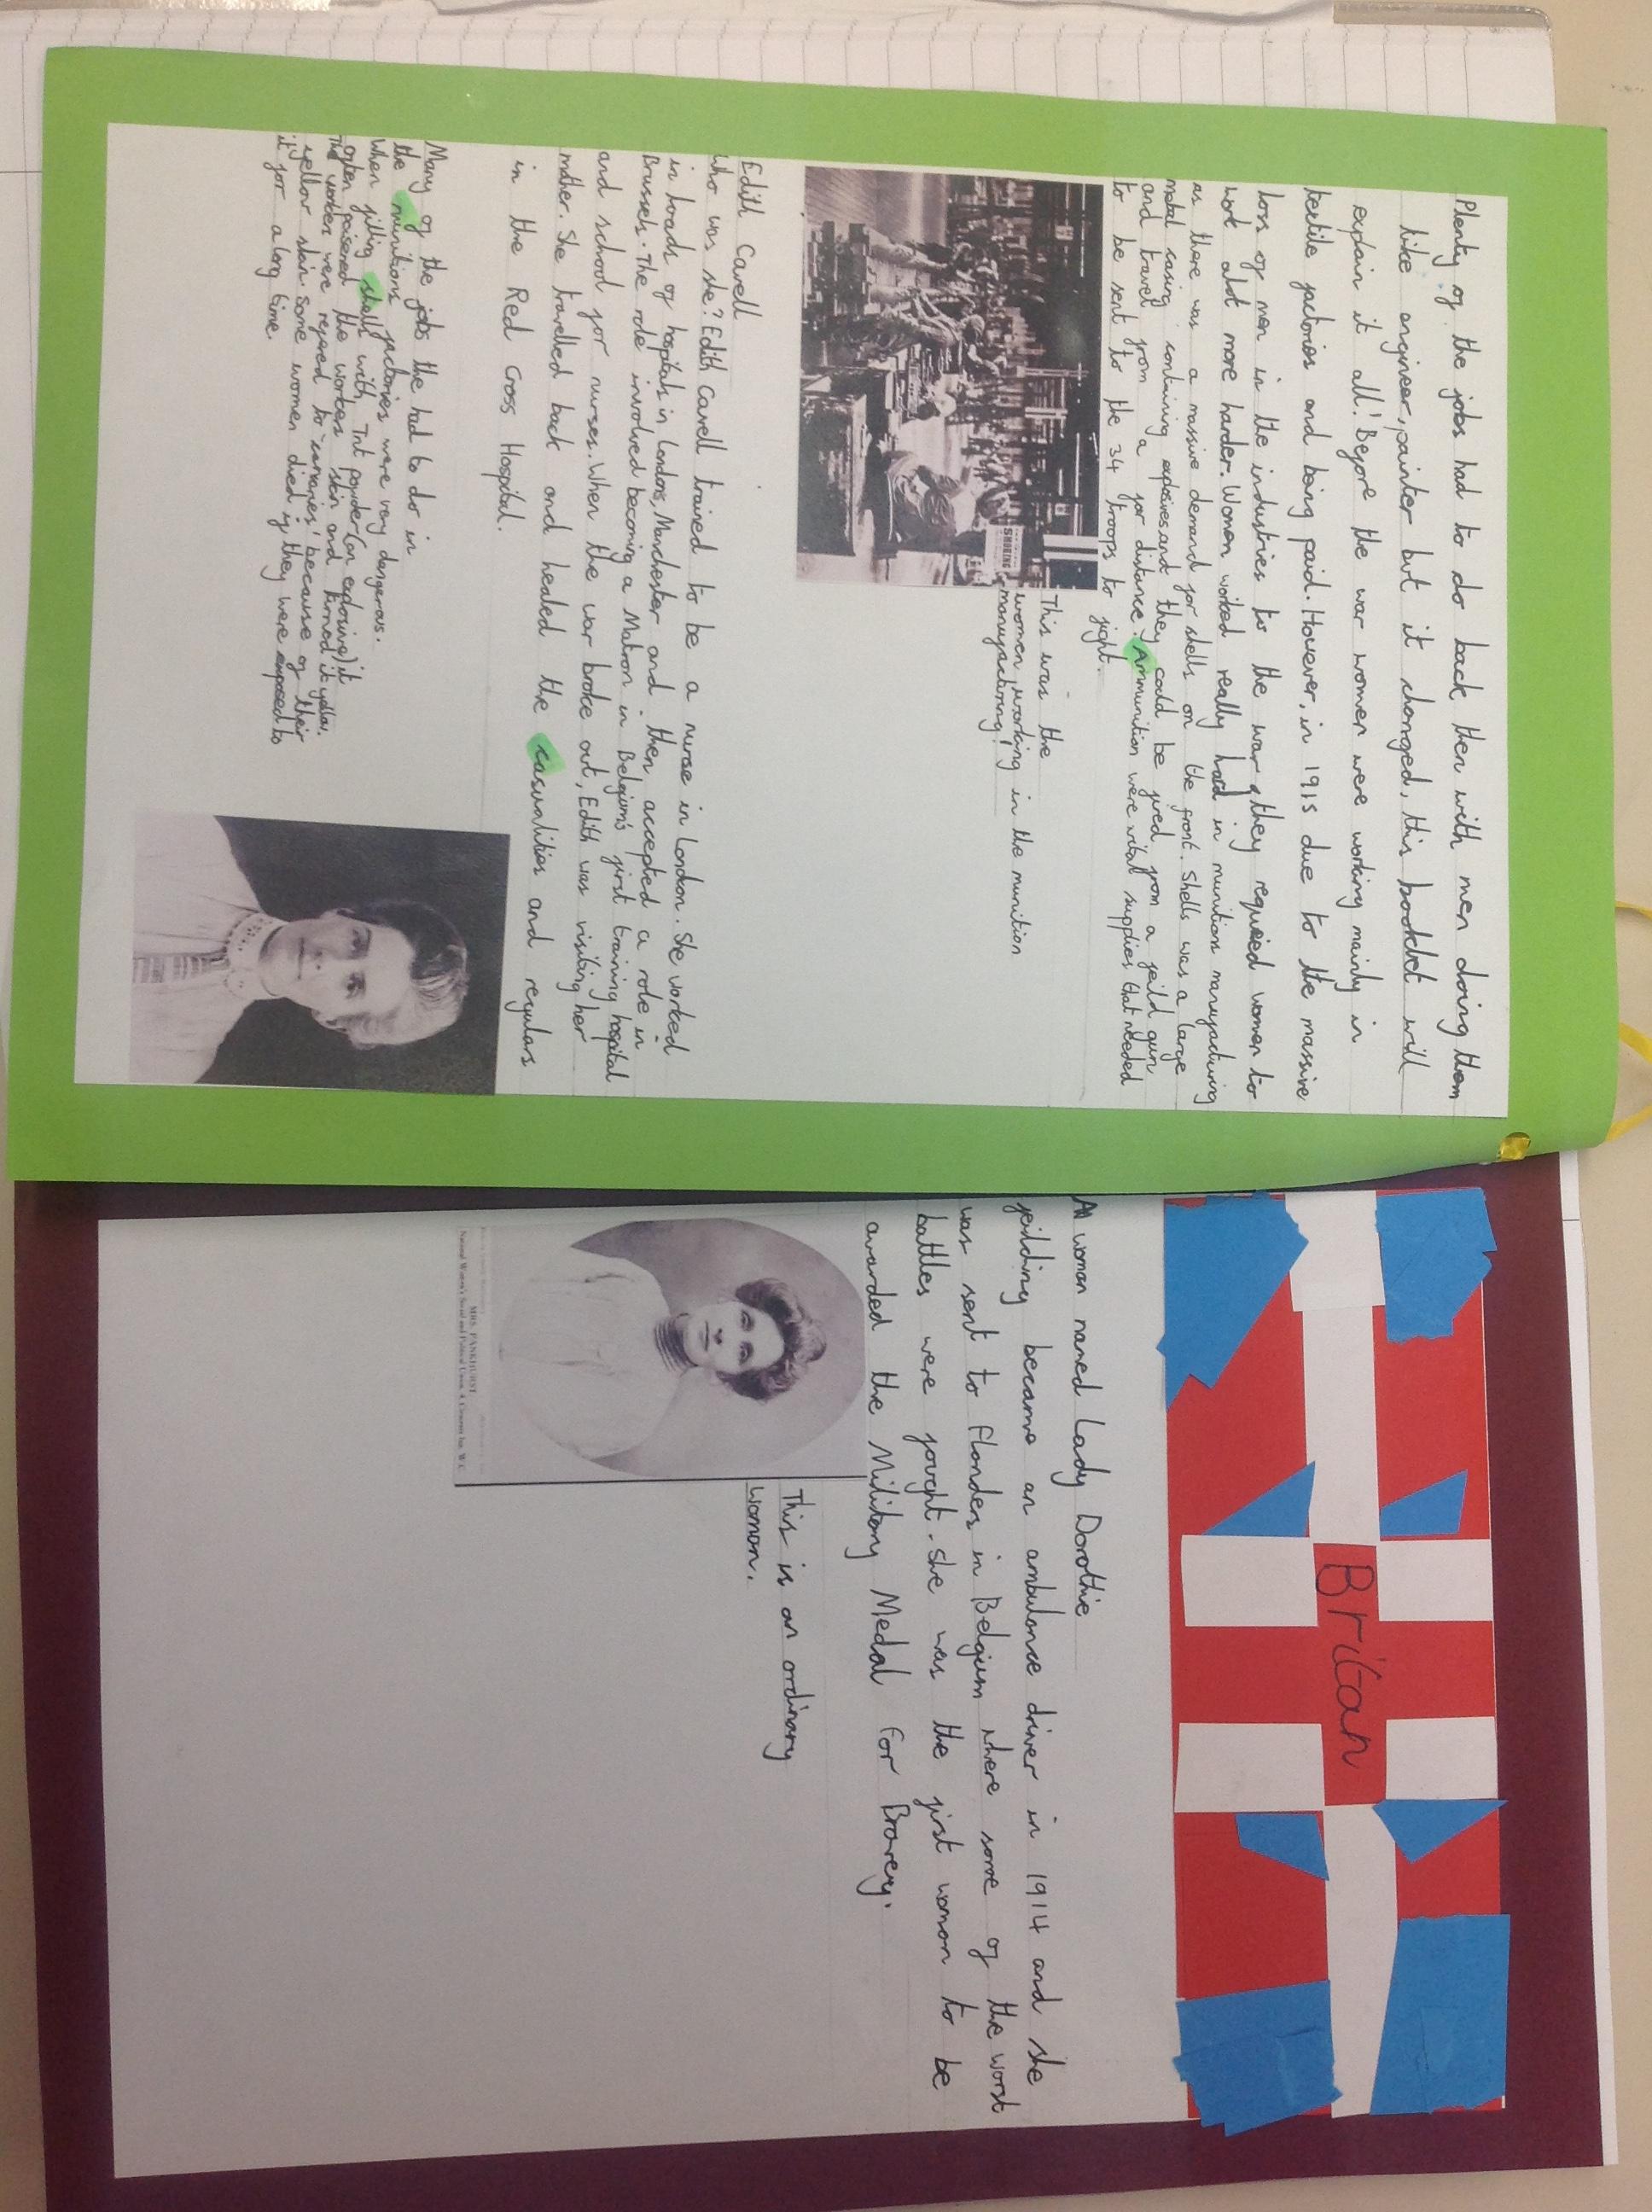 Plenty of the jobs had to do back then with men doing them
like engineer, painter but it changed, this booklet will
explain it all! Before the war women were working mainly in
textile factories and being paid. However, in 1915 due to the massive
loss of men in the industries to the war, they required women to
work alot more harder. Women worked really hard in munitions manufacturing
as there was a massive demand for shells on the front. Shells was a large
metal casing containing explosives and they could be fired from a feild gun
and travel from a far distance. Ammunition were vital supplies that needed
to be sent to the 34 troops to fight.
SMOKING
This was the
women working in the munition
manufacturing!
Edith Cavell
Who was she? Edith Cavell trained to be a nurse in London. She worked
in loads of hospitals in London, Manchester and then accepted a role in
Brussels. The role involved becoming a Matron in Belgium's first training hospital
and school for nurses. When the war broke out, Edith was visiting her
mother. She travelled back and healed the casualities and regulars
in the Red Cross Hospital.
Many of the jobs the had to do in
the munitions factories were very dangerous.
When filling shells with Tnt powder (an explosive) it
often poisoned the workers skin and turned it yellow.
The workers were refered to 'canaries' because of their
yellow skin. Some women died if they were exposed to
it for a long time.
Britan
A woman named Lady Dorothie
feilding became an ambulance driver in 1914 and she
was sent to flanders in Belgium where some of the worst
battles were fought. She was the first woman to be
awarded the Military Medal For Bravery.
This is an ordinary
woman.
MRS. PANKHURST
National Women's Social and Political Union, 4, Clements Inn, W.C.